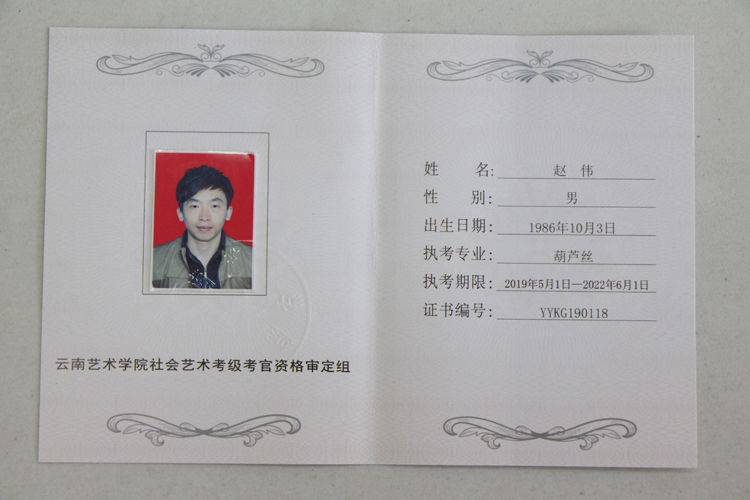 云南艺术学院社会艺术考级考官资格审定组
姓 名: 赵 伟
性 别: 男
出生日期: 1986年10月3日
执考专业: 葫芦丝
执考期限: 2019年5月1日—2022年6月1日
证书编号: YYKG190118